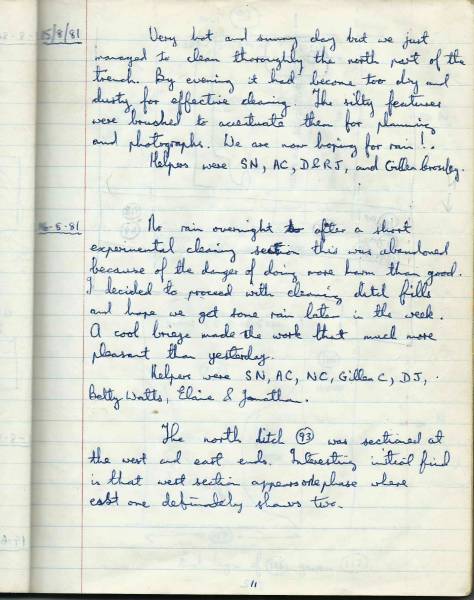 25/8/81 Very hot and sunny day but we just
managed to clean thoroughly the north part of the
trench. By evening it had become too dry and
dusty for effective cleaning. The silty features
were brushed to accentuate them for planning
and photographs. We are now hoping for rain!.
Helpers were SN, AC, D&RJ, and Gillian
26-8-81 No rain overnight so after a short
experimental cleaning this was abandoned
because of the danger of doing more harm than good.
I decided to proceed with cleaning ditch fills
and hope we get some rain later in the week.
A cool brieze made the work that much more
pleasant than yesterday.
Helpers were SN, AC, NC, Gillian C, DJ,
Betty Watts, Elaine & Jonathan.
The north ditch 93 was sectioned at
the west and east ends. Interesting initial find
is that west section appears one phase where
east one definately shows two.
11